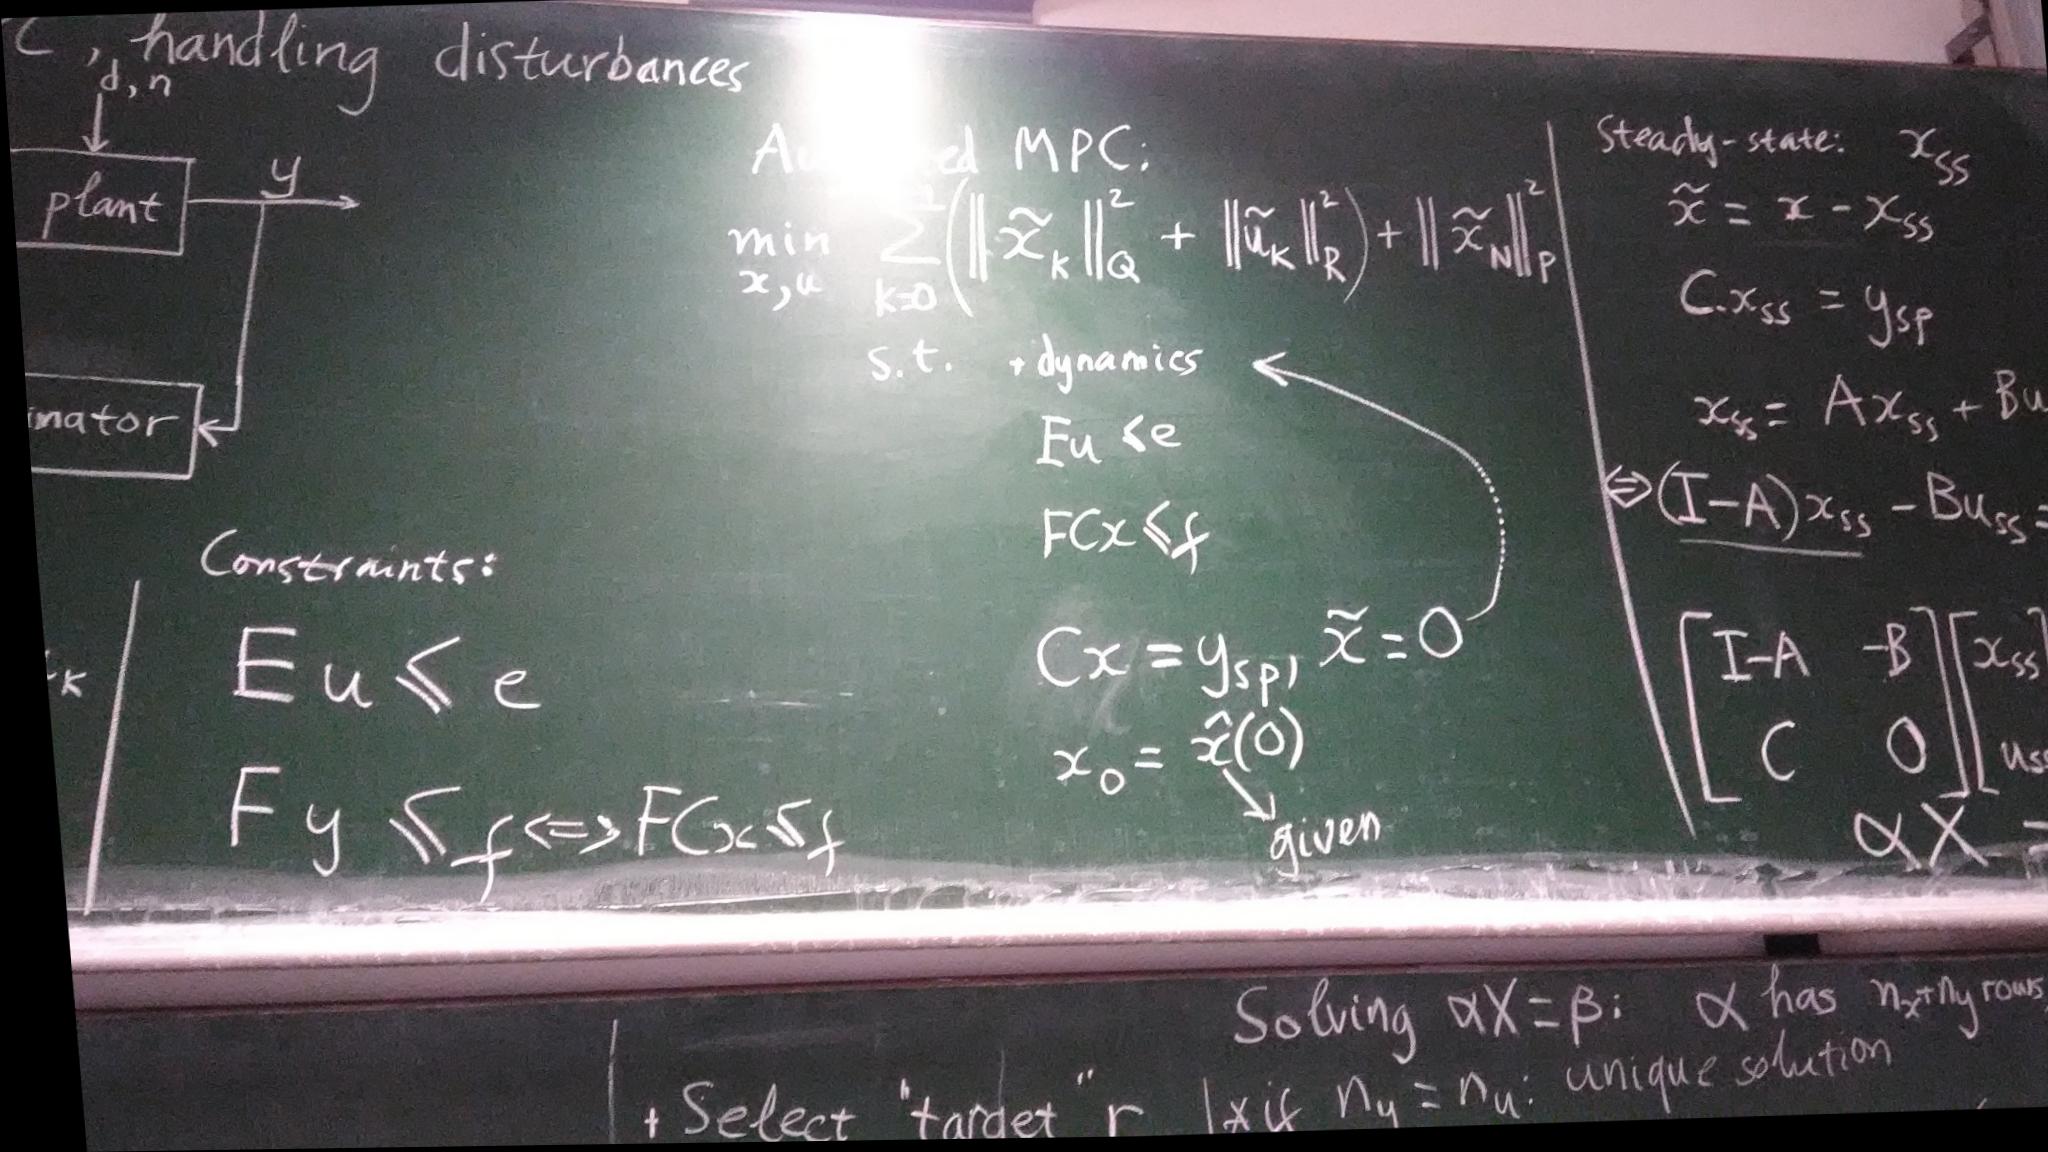 C, handling disturbances
d, n
y
plant
inator
K
Constraints:
Eu ⩽ e
Fy ⩽ f <=> FCx ⩽ f
MPC:
min Σ ( ||x̃_K||²_Q + ||ũ_K||²_R ) + ||x̃_N||²_P
x,u k=0
s.t. + dynamics
Eu ⩽ e
FCx ⩽ f
Cx = y_sp, x̃ = 0
x_0 = x̂(0)
given
Steady-state: x_ss
x̃ = x - x_ss
C.x_ss = y_sp
x_ss = Ax_ss + Bu
⇔ (I-A)x_ss - Bu_ss =
[I-A -B] [x_ss]
[C 0] [u_ss
αX =
Solving αX = β: α has n_x+n_y rows,
+ Select "target" r | * if n_y = n_u: unique solution